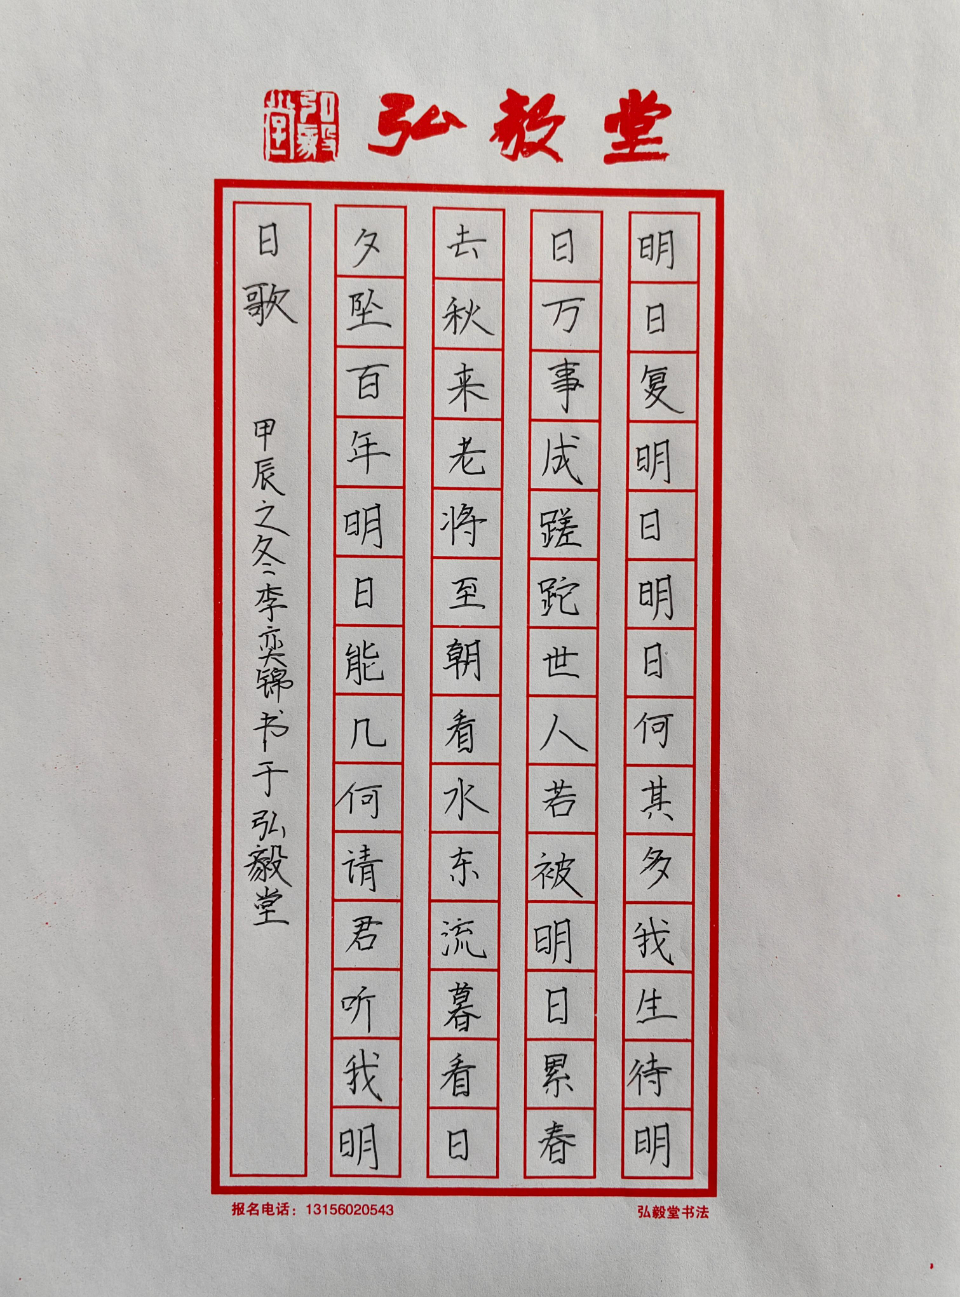 弘毅堂
弘毅堂
明日复明日明日何其多我生待明
日万事成蹉跎世人若被明日累春
去秋来老将至朝看水东流暮看日
夕坠百年明日能几何请君听我明
日歌 甲辰之冬李奕锦书于弘毅堂
报名电话：13156020543
弘毅堂书法